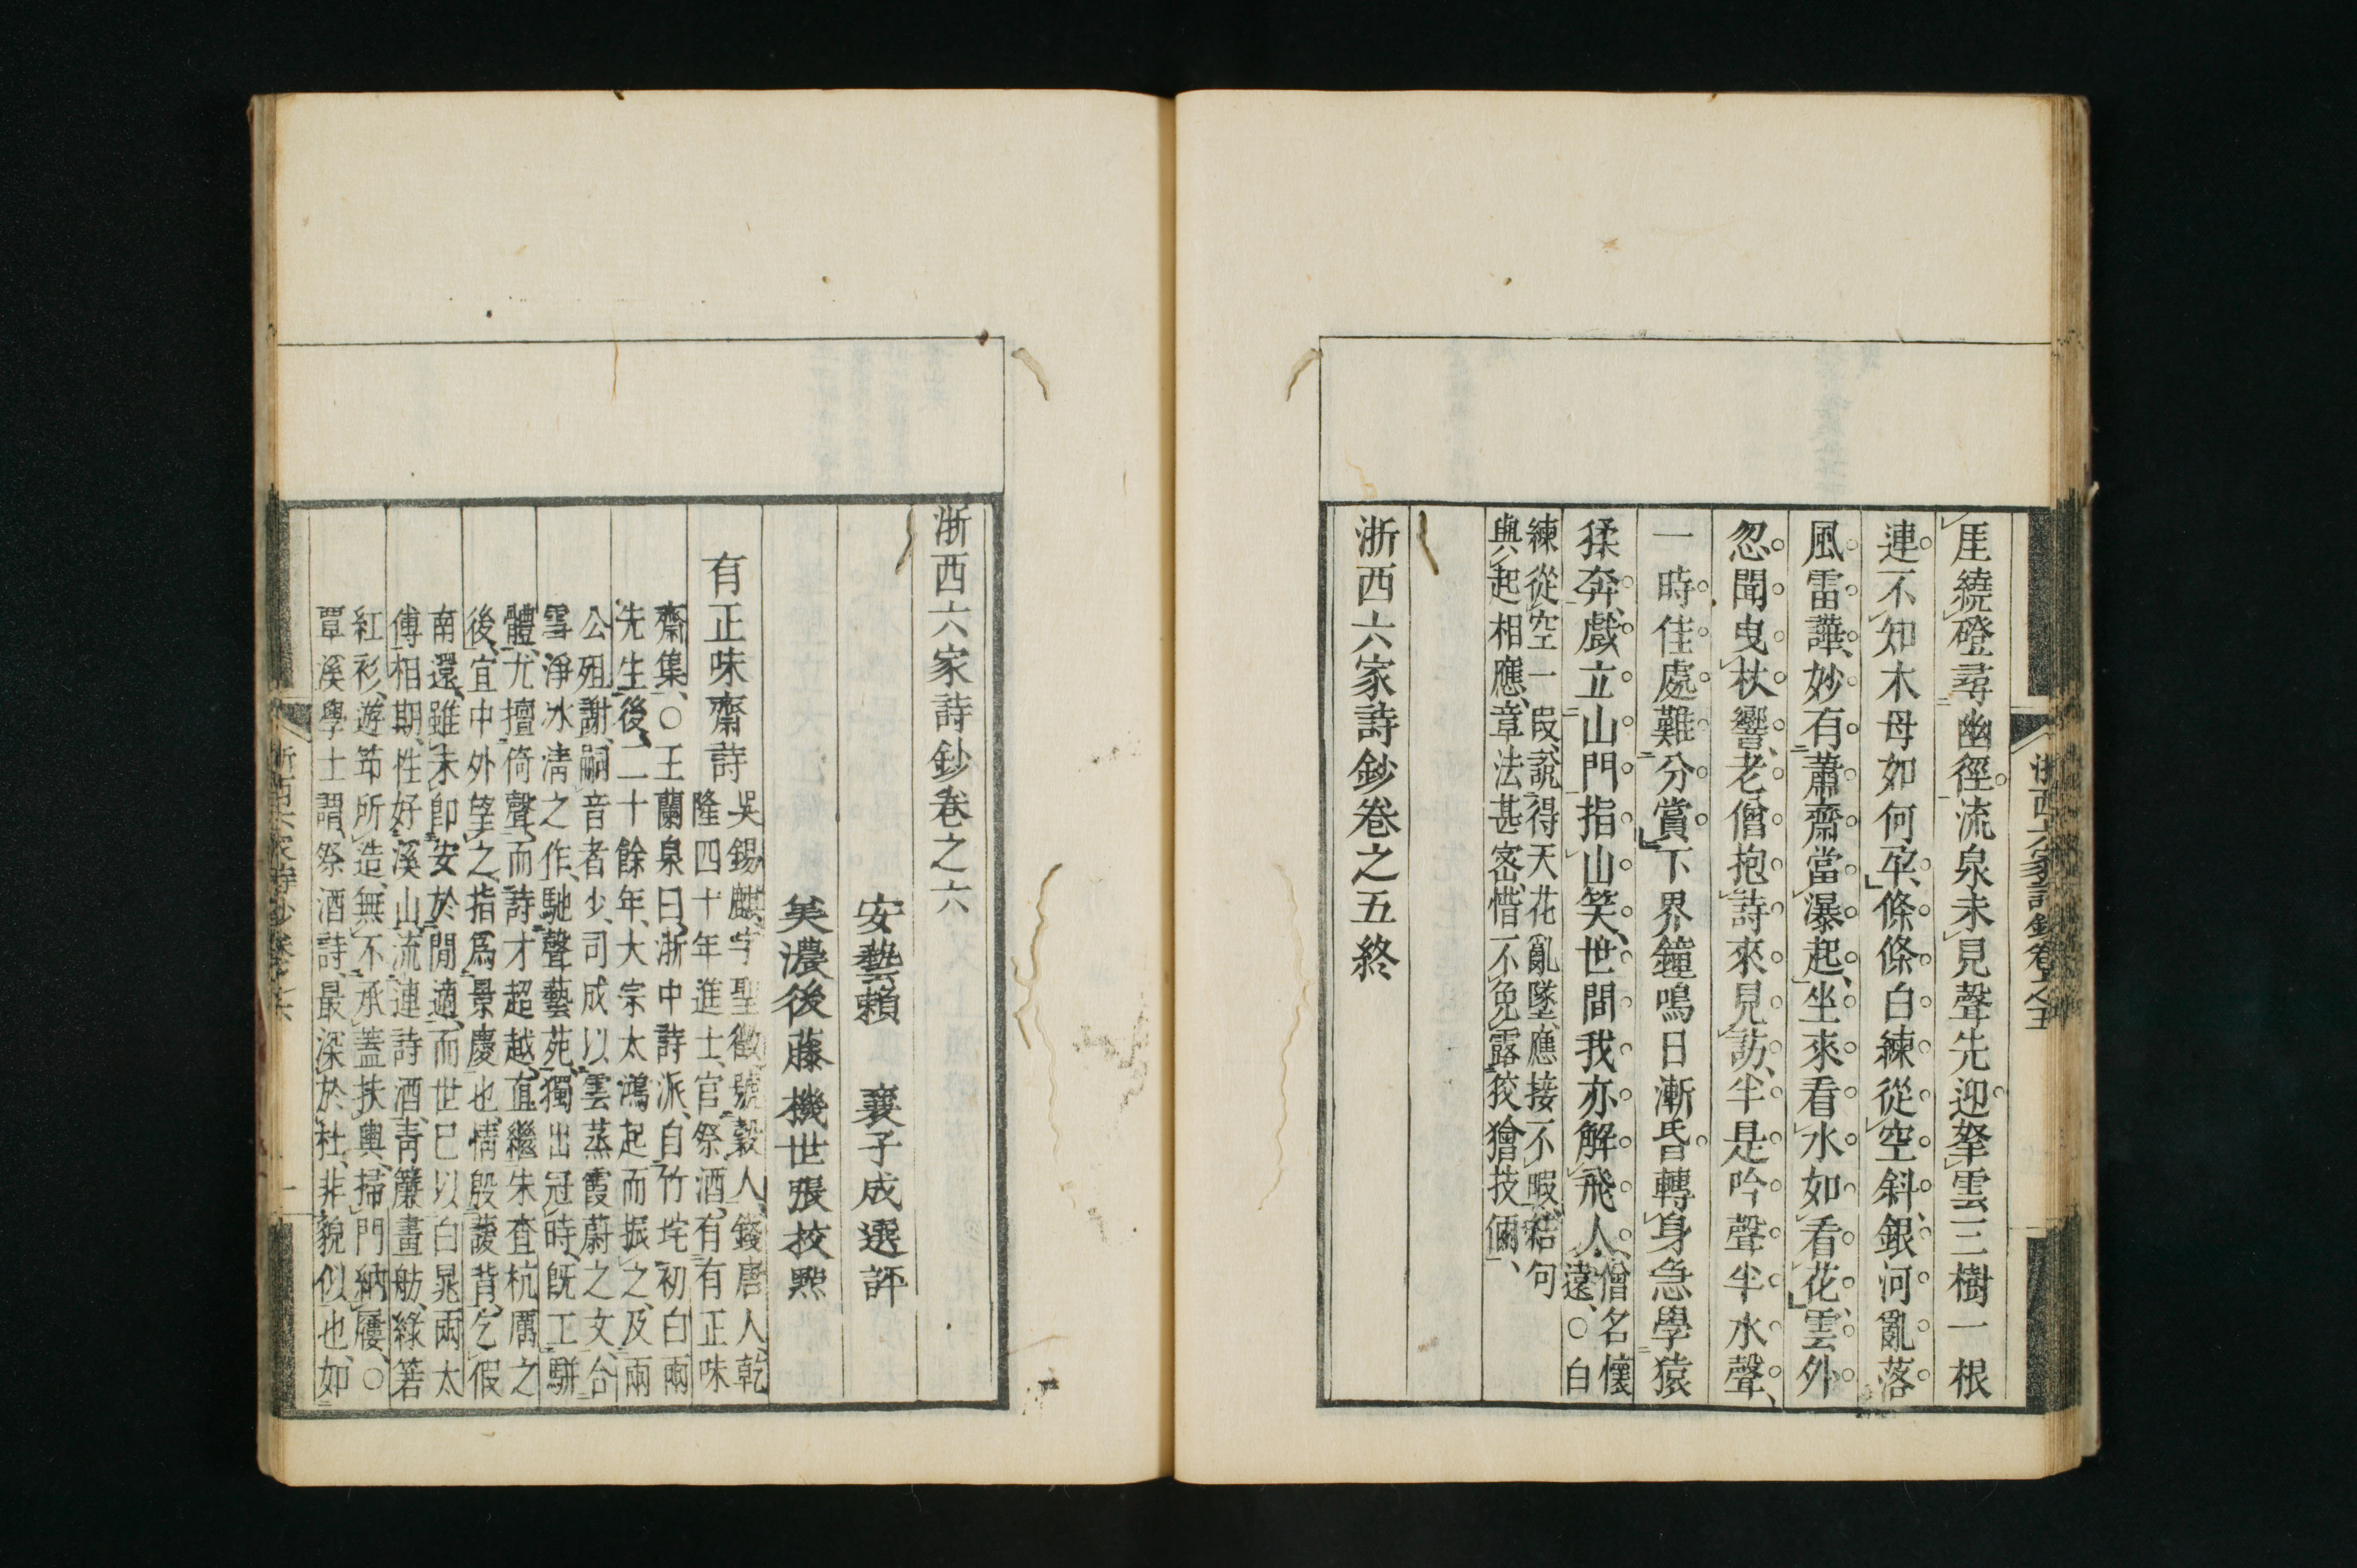 厓繞磴尋幽徑流泉未見聲先迎拏雲三樹一根
連不知木母如何孕條條白練從空斜銀河亂落
風雷譁妙有蕭齋當瀑起坐來看水如看花雲外
忽聞曳杖響老僧抱詩來見訪半是吟聲半水聲
一時佳處難分賞下界鐘鳴日漸昏轉身急學猿
猱奔戲立山門指山笑世間我亦解飛人僧名懷遠○白
練從空一段說得天花亂墜應接不暇結句
與起相應章法甚密惜不免露狡獪技倆
浙西六家詩鈔卷之五終
浙西六家詩鈔卷之五
浙西六家詩鈔卷之六
安藝賴 襄子成選評
美濃後藤機世張校點
有正味齋詩
吳錫麒字聖徵號穀人錢唐人乾
隆四十年進士官祭酒有有正味
齋集○王蘭泉曰浙中詩派自竹垞初白兩
先生後二十餘年大宗太鴻起而振之及兩
公殂謝嗣音者少司成以雲蒸霞蔚之文合
雪淨冰清之作馳聲藝苑獨出冠時既工駢
體尤擅倚聲而詩才超越直繼朱查杭厲之
後宜中外望之指爲景慶也情殷諼背乞假
南還雖未即安於閒適而世已以白晁兩太
傅相期性好溪山流連詩酒青簾畫舫綠箬
紅衫遊笻所造無不承蓋扶輿掃門納屨○
覃溪學士謂祭酒詩最深於杜非貌似也如
浙西六家詩鈔卷之六
一